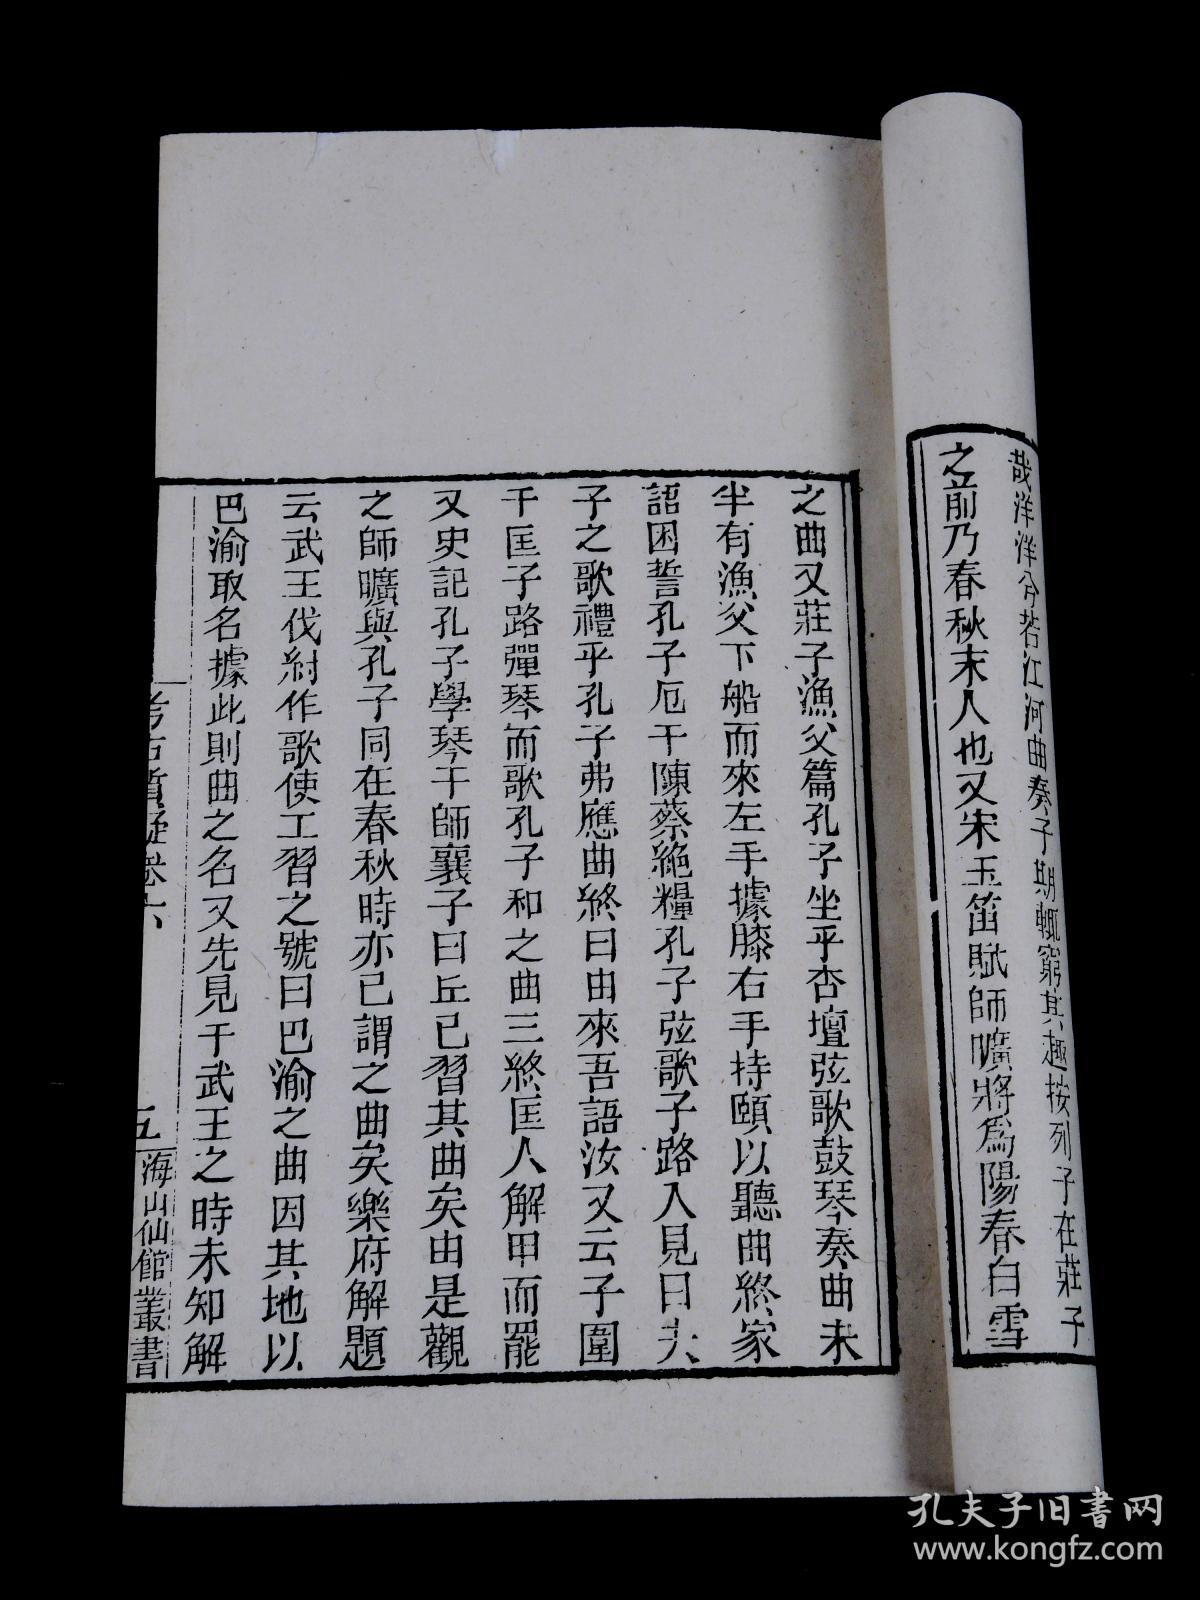 哉洋洋兮若江河曲奏子期輒窮其趣按列子在莊子
之前乃春秋末人也又宋玉笛賦師曠將為陽春白雪
之曲又莊子漁父篇孔子坐乎杏壇弦歌鼓琴奏曲未
半有漁父下船而來左手據膝右手持頤以聽曲終家
語困誓孔子厄于陳蔡絶糧孔子弦歌子路入見曰夫
子之歌禮乎孔子弗應曲終曰由來吾語汝又云子圍
于匡子路彈琴而歌孔子和之曲三終匡人解甲而罷
又史記孔子學琴于師襄子曰丘已習其曲矣由是觀
之師曠與孔子同在春秋時亦已謂之曲矣樂府解題
云武王伐紂作歌使工習之號曰巴渝之曲因其地以
巴渝取名據此則曲之名又先見于武王之時未知解
考古質疑卷六
五
海山仙館叢書
孔夫子旧书网
www.kongfz.com